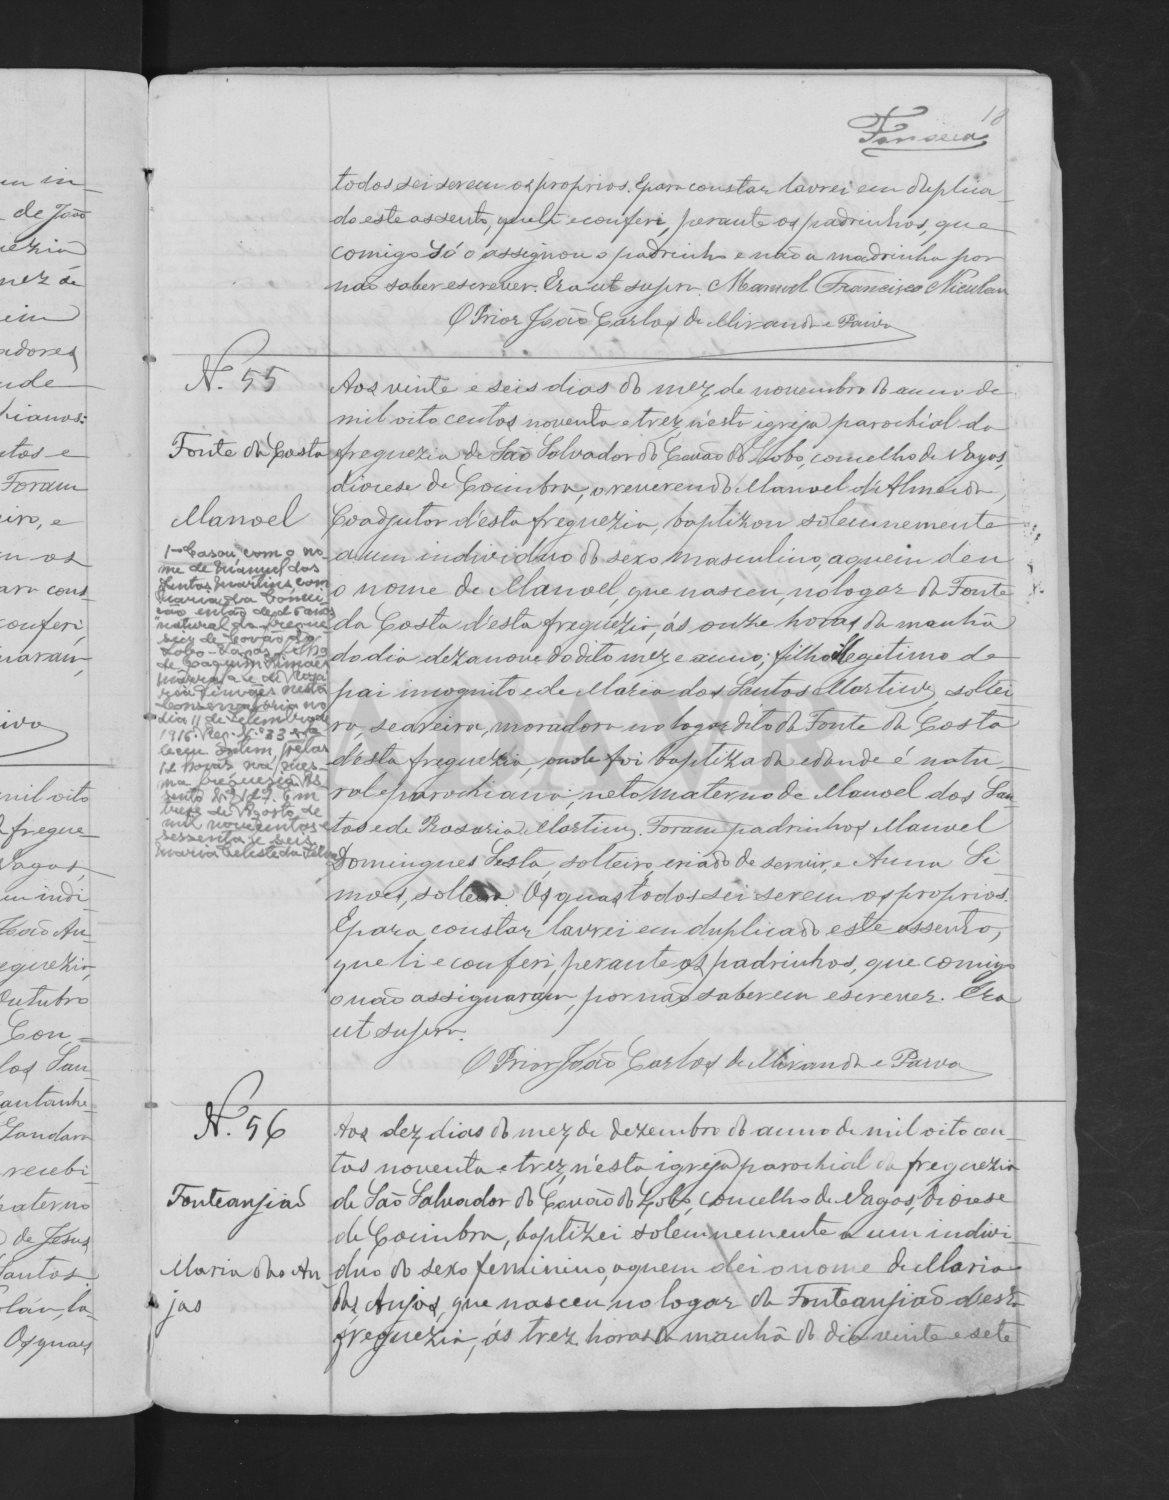 18
Fonseca
todos sei serem os proprios. E para constar lavrei em duplica-
do este assento, que li e conferi, perante os padrinhos, que
comigo só o assignou o padrinho e não a madrinha por
não saber escrever. Era ut supra. Manuel Francisco Niculau
O Prior João Carlos de Miranda e Paiva
N. 55
Fonte da Costa
Manoel
1º Casou com o no-
me de Manuel dos
Santos Martins com
Maria da Concei-
ção então de anos
natural da fregue-
sia de Covão do
Lobo - Vagos filha
de Joaquim Simões
e de Rosa-
ria Simões nesta
Conservatória no
dia 11 de Setembro de
1916. Reg. N.º 33
ceu pelas
12 horas na mes-
ma freguesia As-
sento Nº 127. Em
de Agosto de
mil novecentos e
sessenta e seis
Maria Celeste da Silva
Aos vinte e seis dias do mez de novembro do anno de
mil oito centos noventa e trez, n'esta igreja parochial da
freguezia de São Salvador do Covão do Lobo, concelho de Vagos,
diocese de Coimbra, o reverendo Manoel d'Almeida,
Coadjutor d'esta freguezia, baptizou solemnemente
a um individuo do sexo masculino, a quem deu
o nome de Manoel, que nasceu, no logar da Fonte
da Costa d'esta freguezia, ás onze horas da manhã
do dia dezanove do dito mez e anno; filho illegitimo de
pai incognito e de Maria dos Santos Martins, soltei-
ra, seareira, moradora no logar dito da Fonte da Costa
d'esta freguezia, onde foi baptizada e donde é natu-
ral e parochiana; neto materno de Manoel dos San-
tos e de Rosaria Martins. Foram padrinhos Manoel
Domingues Sesta, solteiro, criado de servir, e Anna Si-
mões, solteira. Os quaes todos sei serem os proprios.
E para constar lavrei em duplicado este assento,
que li e conferi, perante os padrinhos, que comigo
o não assignaram, por não saberem escrever. Era
ut supra.
O Prior João Carlos de Miranda e Paiva
N. 56
Fonteanjião
Maria dos An-
jos
Aos dez dias do mez de dezembro do anno de mil oito cen-
tos noventa e trez, n'esta igreja parochial da freguezia
de São Salvador do Covão do Lobo, concelho de Vagos, diocese
de Coimbra, baptizei solemnemente a um indivi-
duo do sexo feminino, a quem dei o nome de Maria
dos Anjos, que nasceu, no logar da Fonteanjião d'esta
freguezia, ás trez horas da manhã do dia vinte e sete